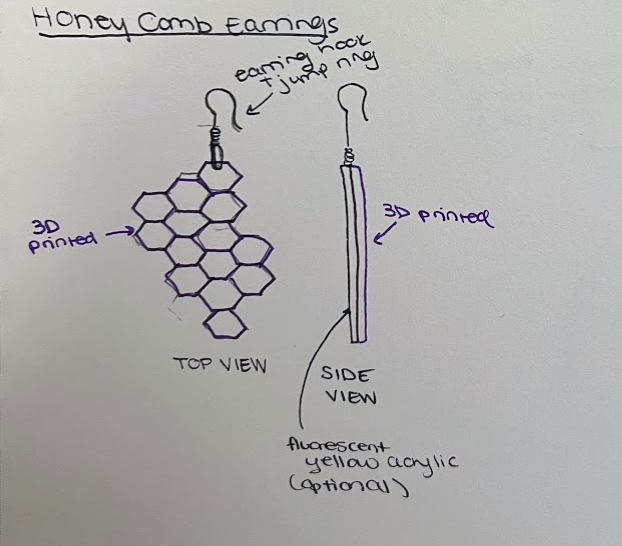 Honey Comb Earrings
earring hook
+ jump ring
3D
printed
3D printed
TOP VIEW
SIDE
VIEW
fluorescent
yellow acrylic
(optional)